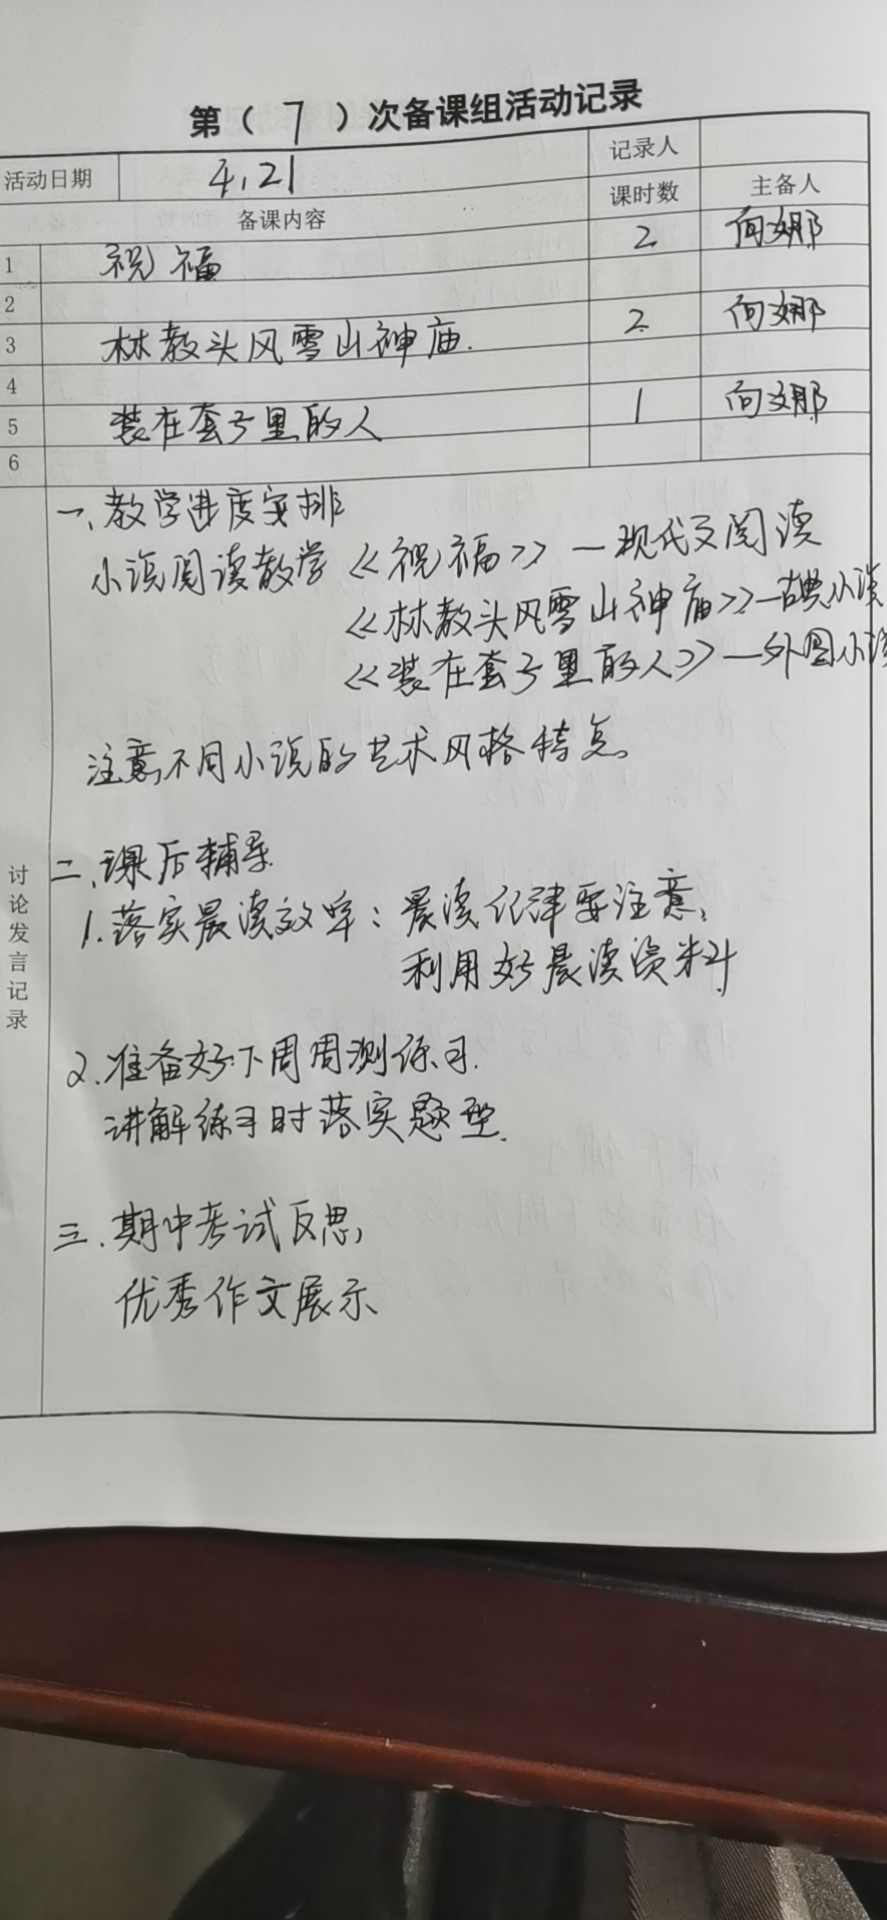 第（7）次备课组活动记录
活动日期 4.21 记录人
备课内容 课时数 主备人
1 祝福 2 向娜
2
3 林教头风雪山神庙. 2 向娜
4
5 装在套子里的人 1 向娜
6
讨论发言记录
一、教学进度安排
小说阅读教学《祝福》—现代文阅读
《林教头风雪山神庙》—古典小说
《装在套子里的人》—外国小说
注意不同小说的艺术风格特点。
二、课后辅导
1.落实晨读效率：晨读纪律要注意，
利用好晨读资料
2.准备好下周周测练习.
讲解练习时落实题型.
三.期中考试反思，
优秀作文展示